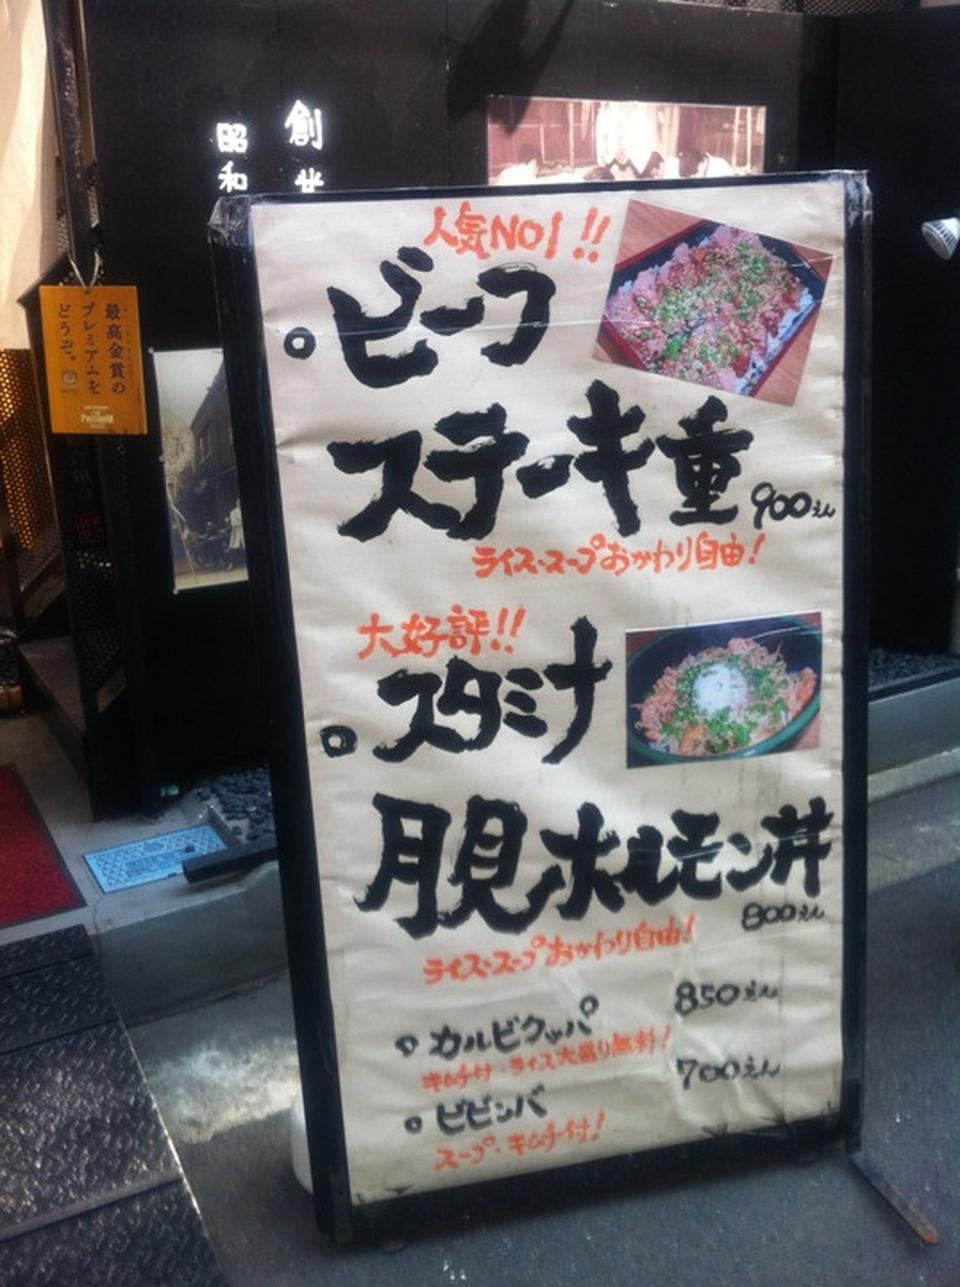 創
昭和
最高金賞の
プレミアムを
どうぞ。
人気NO1!!
ビーフ
ステーキ重
900えん
ライス・スープおかわり自由!
大好評!!
スタミナ
月見ホルモン丼
800えん
ライス・スープおかわり自由!
カルビクッパ 850えん
キムチ付・ライス大盛り無料!
ビビンバ 700えん
スープ・キムチ付!